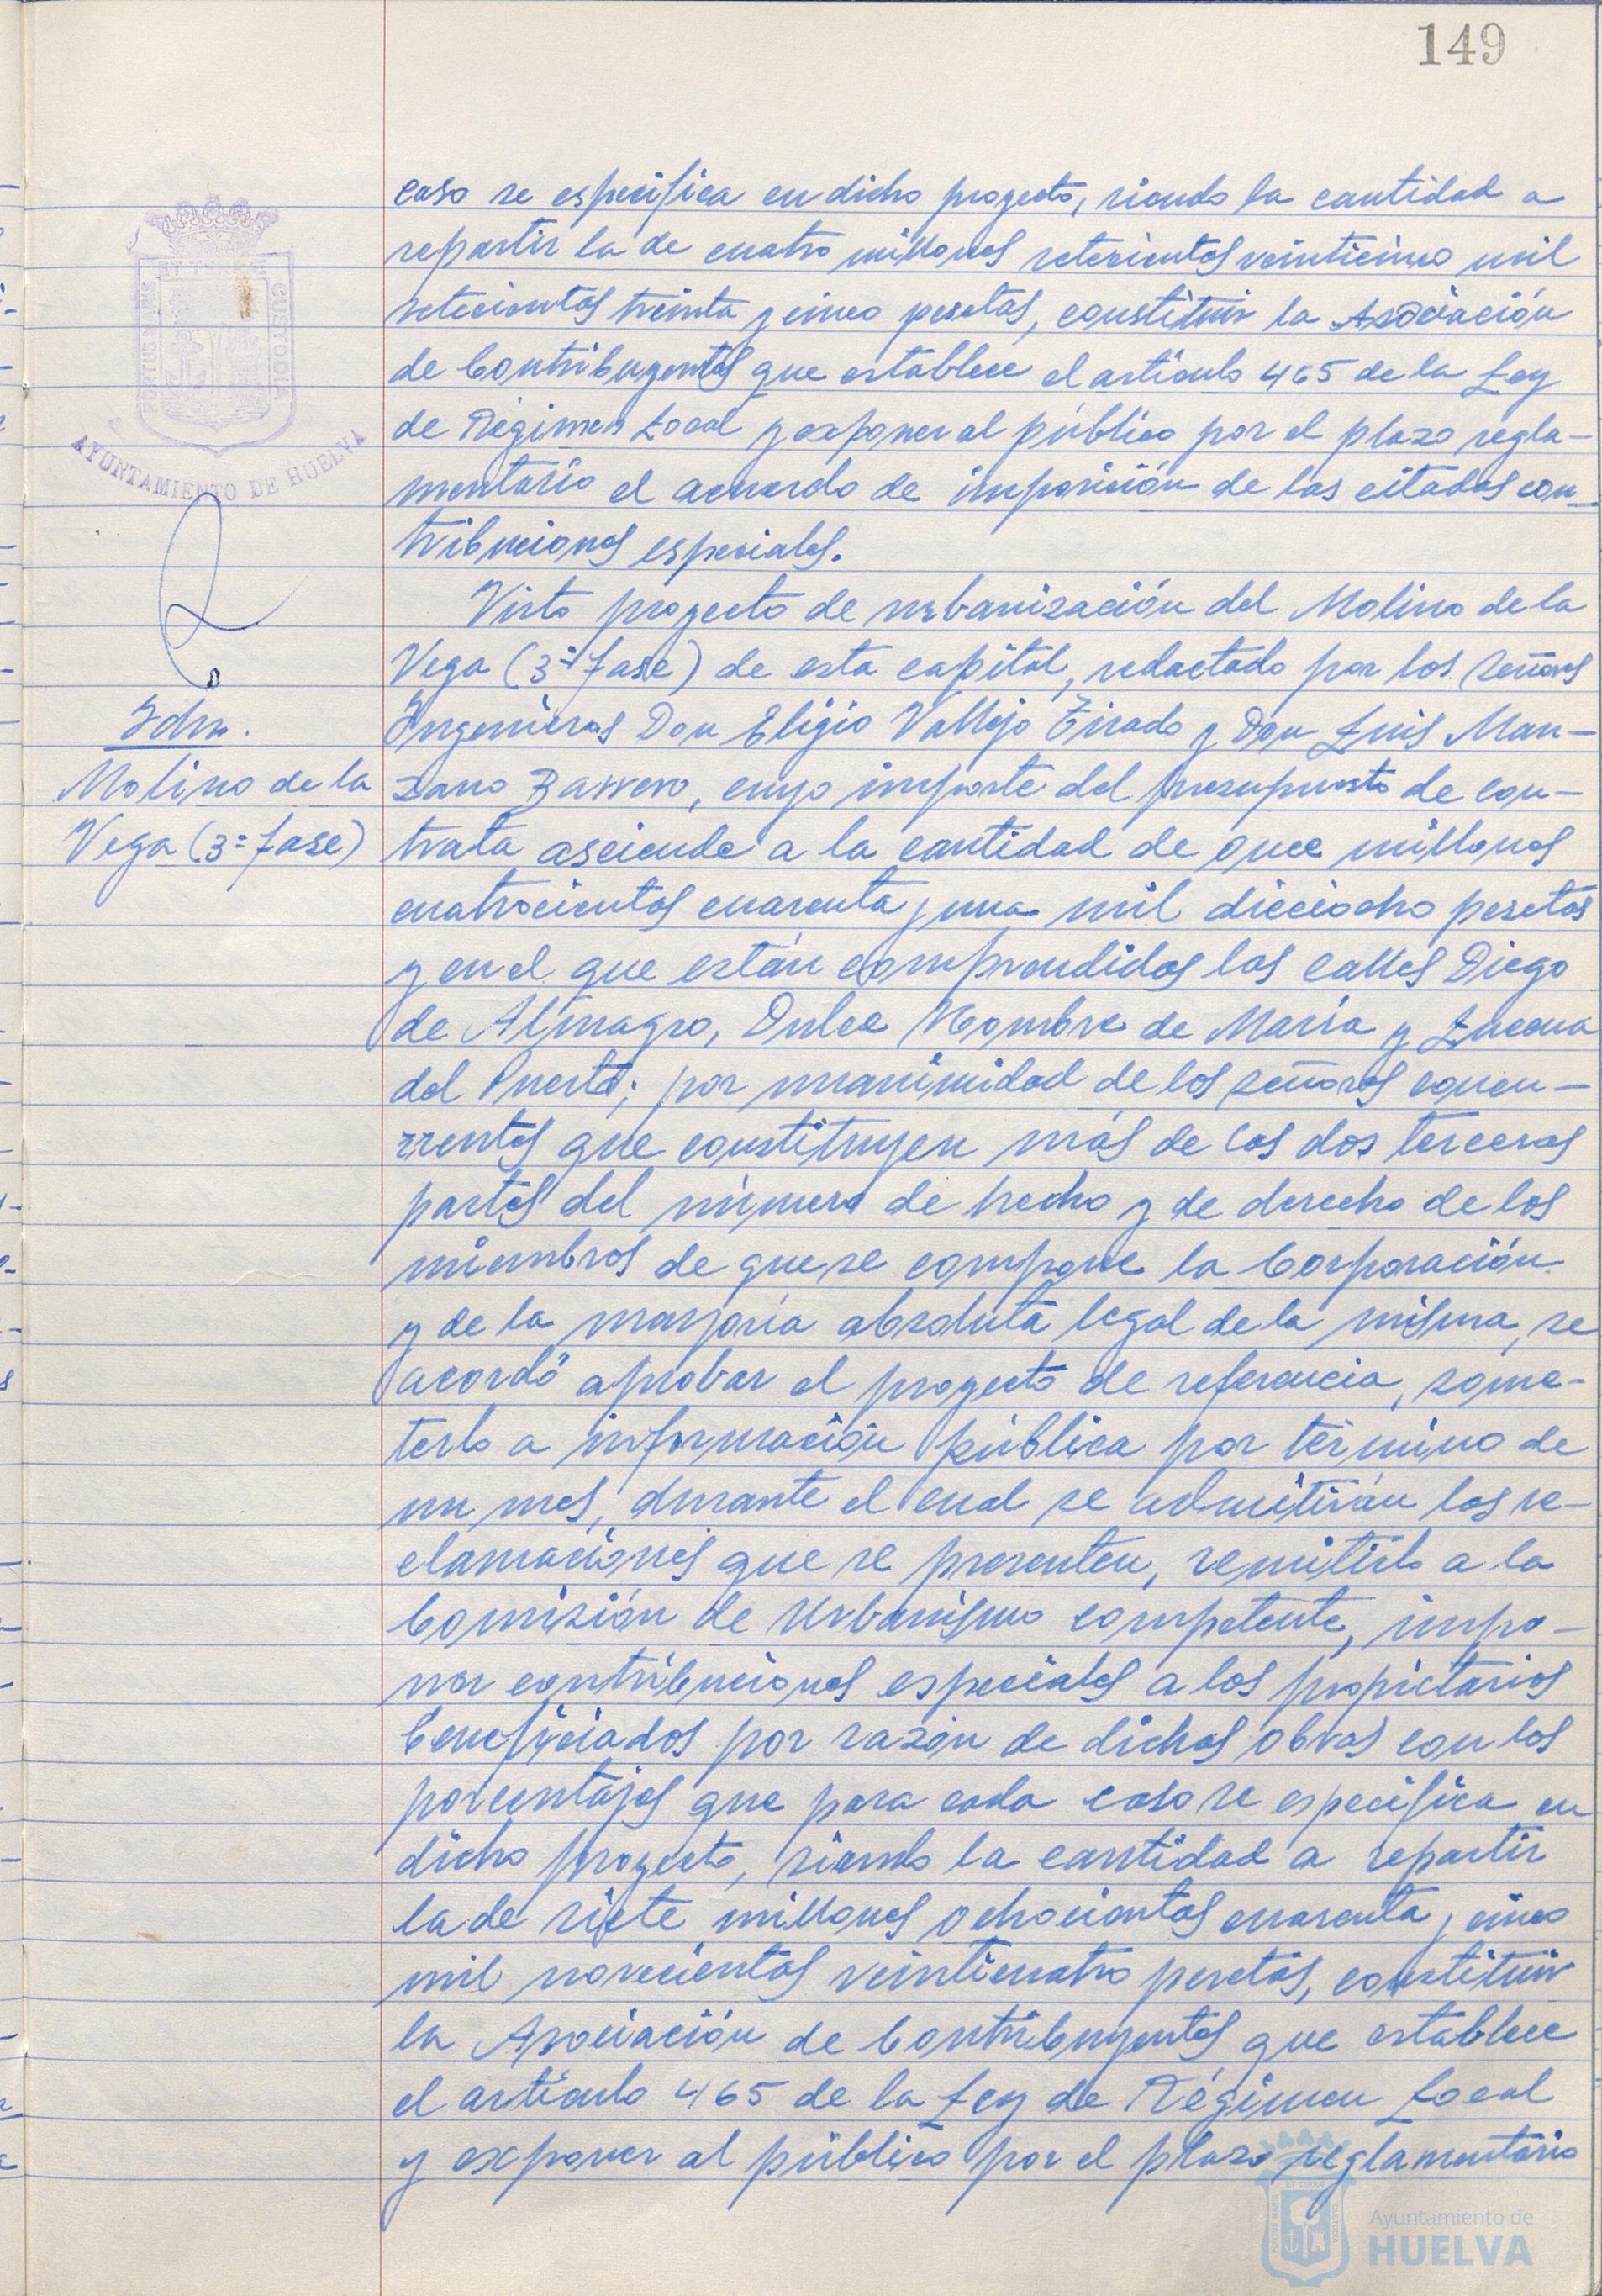 149
caso se especifica en dicho proyecto, siendo la cantidad a
repartir la de cuatro millones setecientos veinticinco mil
setecientos treinta y cinco pesetas, constituir la Asociación
de Contribuyentes que establece el artículo 465 de la Ley
de Régimen Local y exponer al público por el plazo regla-
mentario el acuerdo de imposición de las citadas con-
tribuciones especiales.
PORTUS MARIS
ET TERRAE
CUSTODIA
AYUNTAMIENTO DE HUELVA
Idm.
Molino de la
Vega (3ª fase)
Visto proyecto de urbanización del Molino de la
Vega (3ª fase) de esta capital, redactado por los señores
Ingenieros Don Eligio Vallejo Tirado y Don Luis Man-
zano Barrero, cuyo importe del presupuesto de con-
trata asciende a la cantidad de once millones
cuatrocientas cuarenta y una mil dieciocho pesetas
y en el que están comprendidas las calles Diego
de Almagro, Dulce Nombre de María y Lucena
del Puerto; por unanimidad de los señores concu-
rrentes que constituyen más de las dos terceras
partes del número de hecho y de derecho de los
miembros de que se compone la Corporación
y de la mayoría absoluta legal de la misma, se
acordó aprobar el proyecto de referencia, some-
terlo a información pública por término de
un mes, durante el cual se admitirán las re-
clamaciones que se presenten, remitirlo a la
Comisión de Urbanismo competente, impo-
ner contribuciones especiales a los propietarios
beneficiados por razón de dichas obras con los
porcentajes que para cada caso se especifica en
dicho proyecto, siendo la cantidad a repartir
la de siete millones ochocientas cuarenta y cinco
mil novecientas veinticuatro pesetas, constituir
la Asociación de Contribuyentes que establece
el artículo 465 de la Ley de Régimen Local
y exponer al público por el plazo reglamentario
Ayuntamiento de
HUELVA